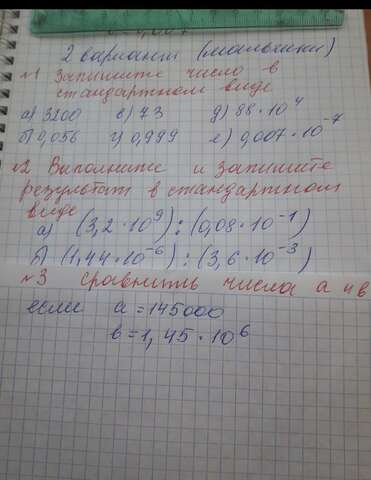 2 вариант (мальчики)
№1 Запишите число в
стандартном виде
а) 3200 в) 73 д) 88 · 10⁴
б) 0,056 г) 0,999 е) 0,007 · 10⁻⁷
№2 Выполните и запишите
результат в стандартном
виде
а) (3,2 · 10⁹) : (0,08 · 10⁻¹)
б) (1,44 · 10⁻⁶) : (3,6 · 10⁻³)
№3 Сравнить числа а и в
если а = 145000
в = 1,45 · 10⁶